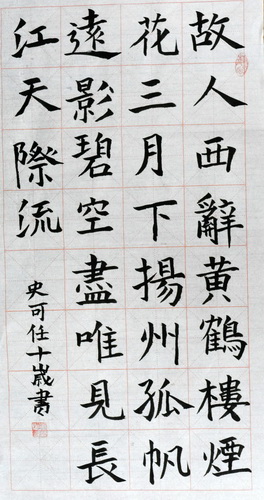 故人西辭黄鶴樓煙
花三月下揚州孤帆
遠影碧空盡唯見長
江天際流
史可任十歲書